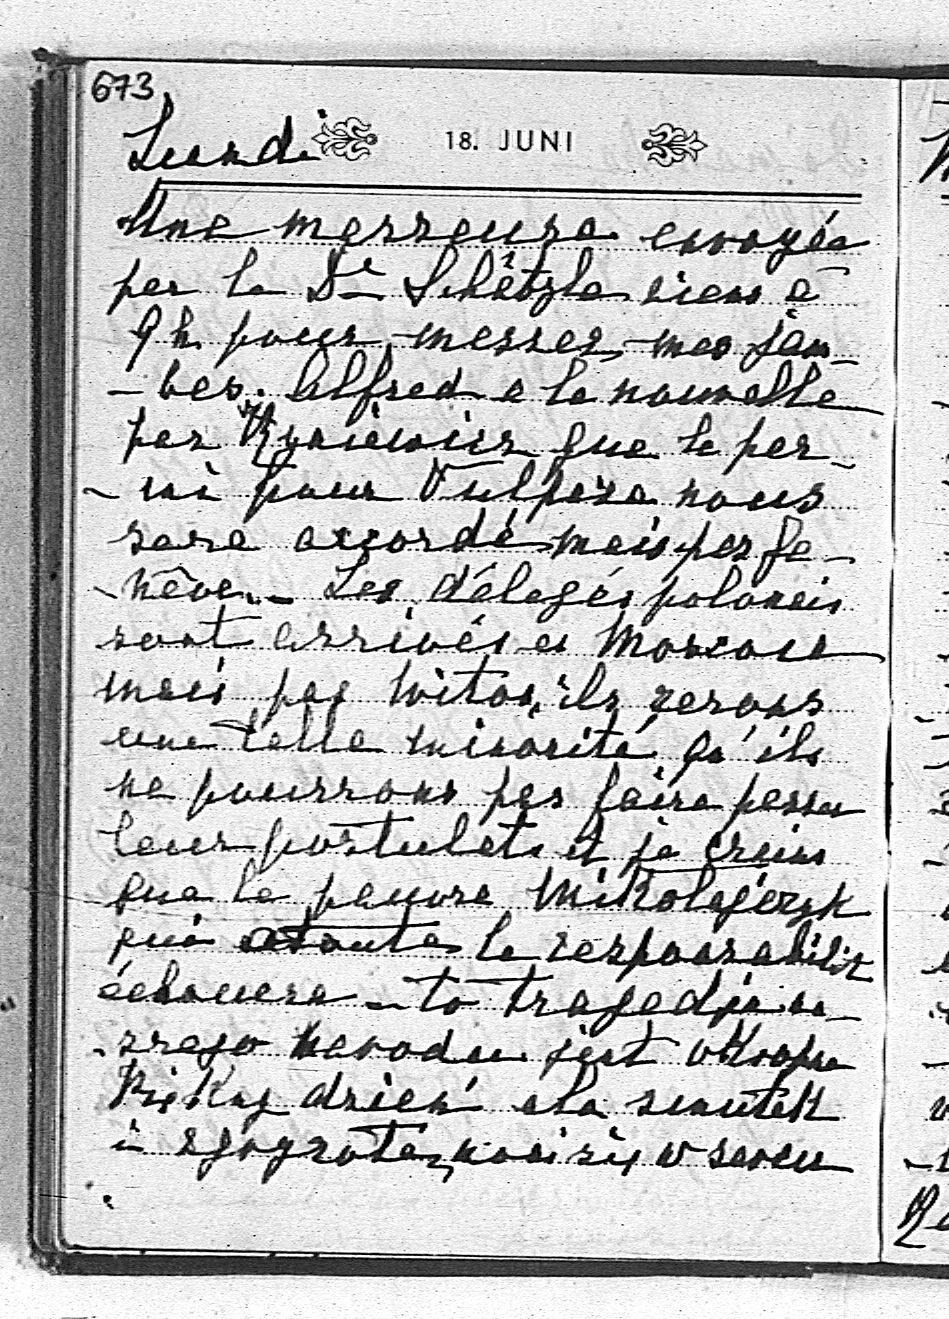 673
Lundi
18. JUNI
Une masseuse envoyée
par le Dr Schätzle viens à
9 h. pour masser mes jam-
-bes. Alfred a la nouvelle
par que le per-
-mi pour Vulpera nous
sera accordé mais pas Ge-
-nève. - Les délegés polonais
sont arrivés a Moscou
mais pas Witos, ils serons
une telle minorité qu'ils
ne pourrons pas faire passer
leur postulats et je crains
que le pauvre Mikolajczyk
qui a toute la responsabilité
échouera - to tragedja na-
-szego narodu jest okropna
Piękny dzień ale smutek
i zgryzota nosi się w sercu
M